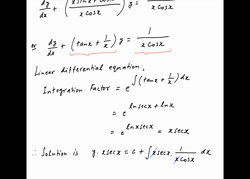 dy/dx + (x sinx + cosx / x cosx) y = / x cosx
or dy/dx + (tanx + 1/x) y = 1 / x cosx
Linear differential equation,
Integration Factor = e^∫(tanx + 1/x) dx
= e^lnsecx + lnx
= e^lnxsecx = xsecx
∴ Solution is y. xsecx = c + ∫xsecx. 1/xcosx dx